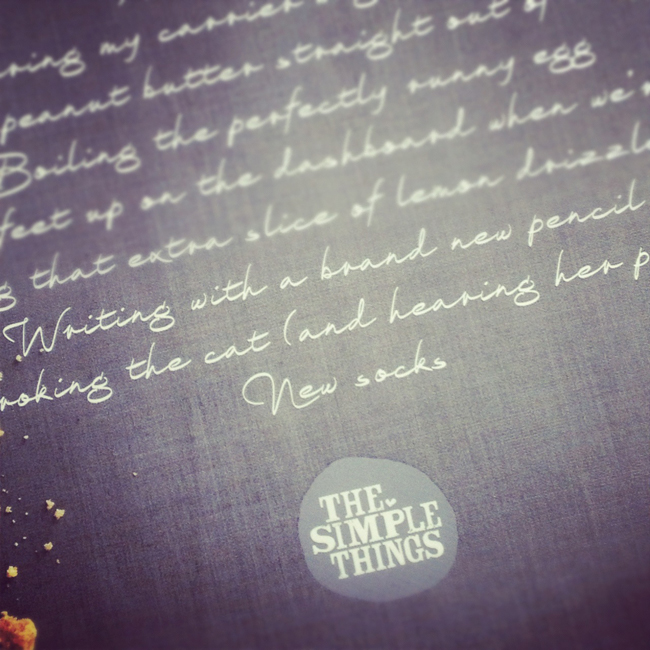 my carrier
peanut butter straight out of
Boiling the perfectly runny egg
feet up on the dashboard when we'r
that extra slice of lemon drizzle
Writing with a brand new pencil
roking the cat (and hearing her p
New socks
THE
SIMPLE
THINGS